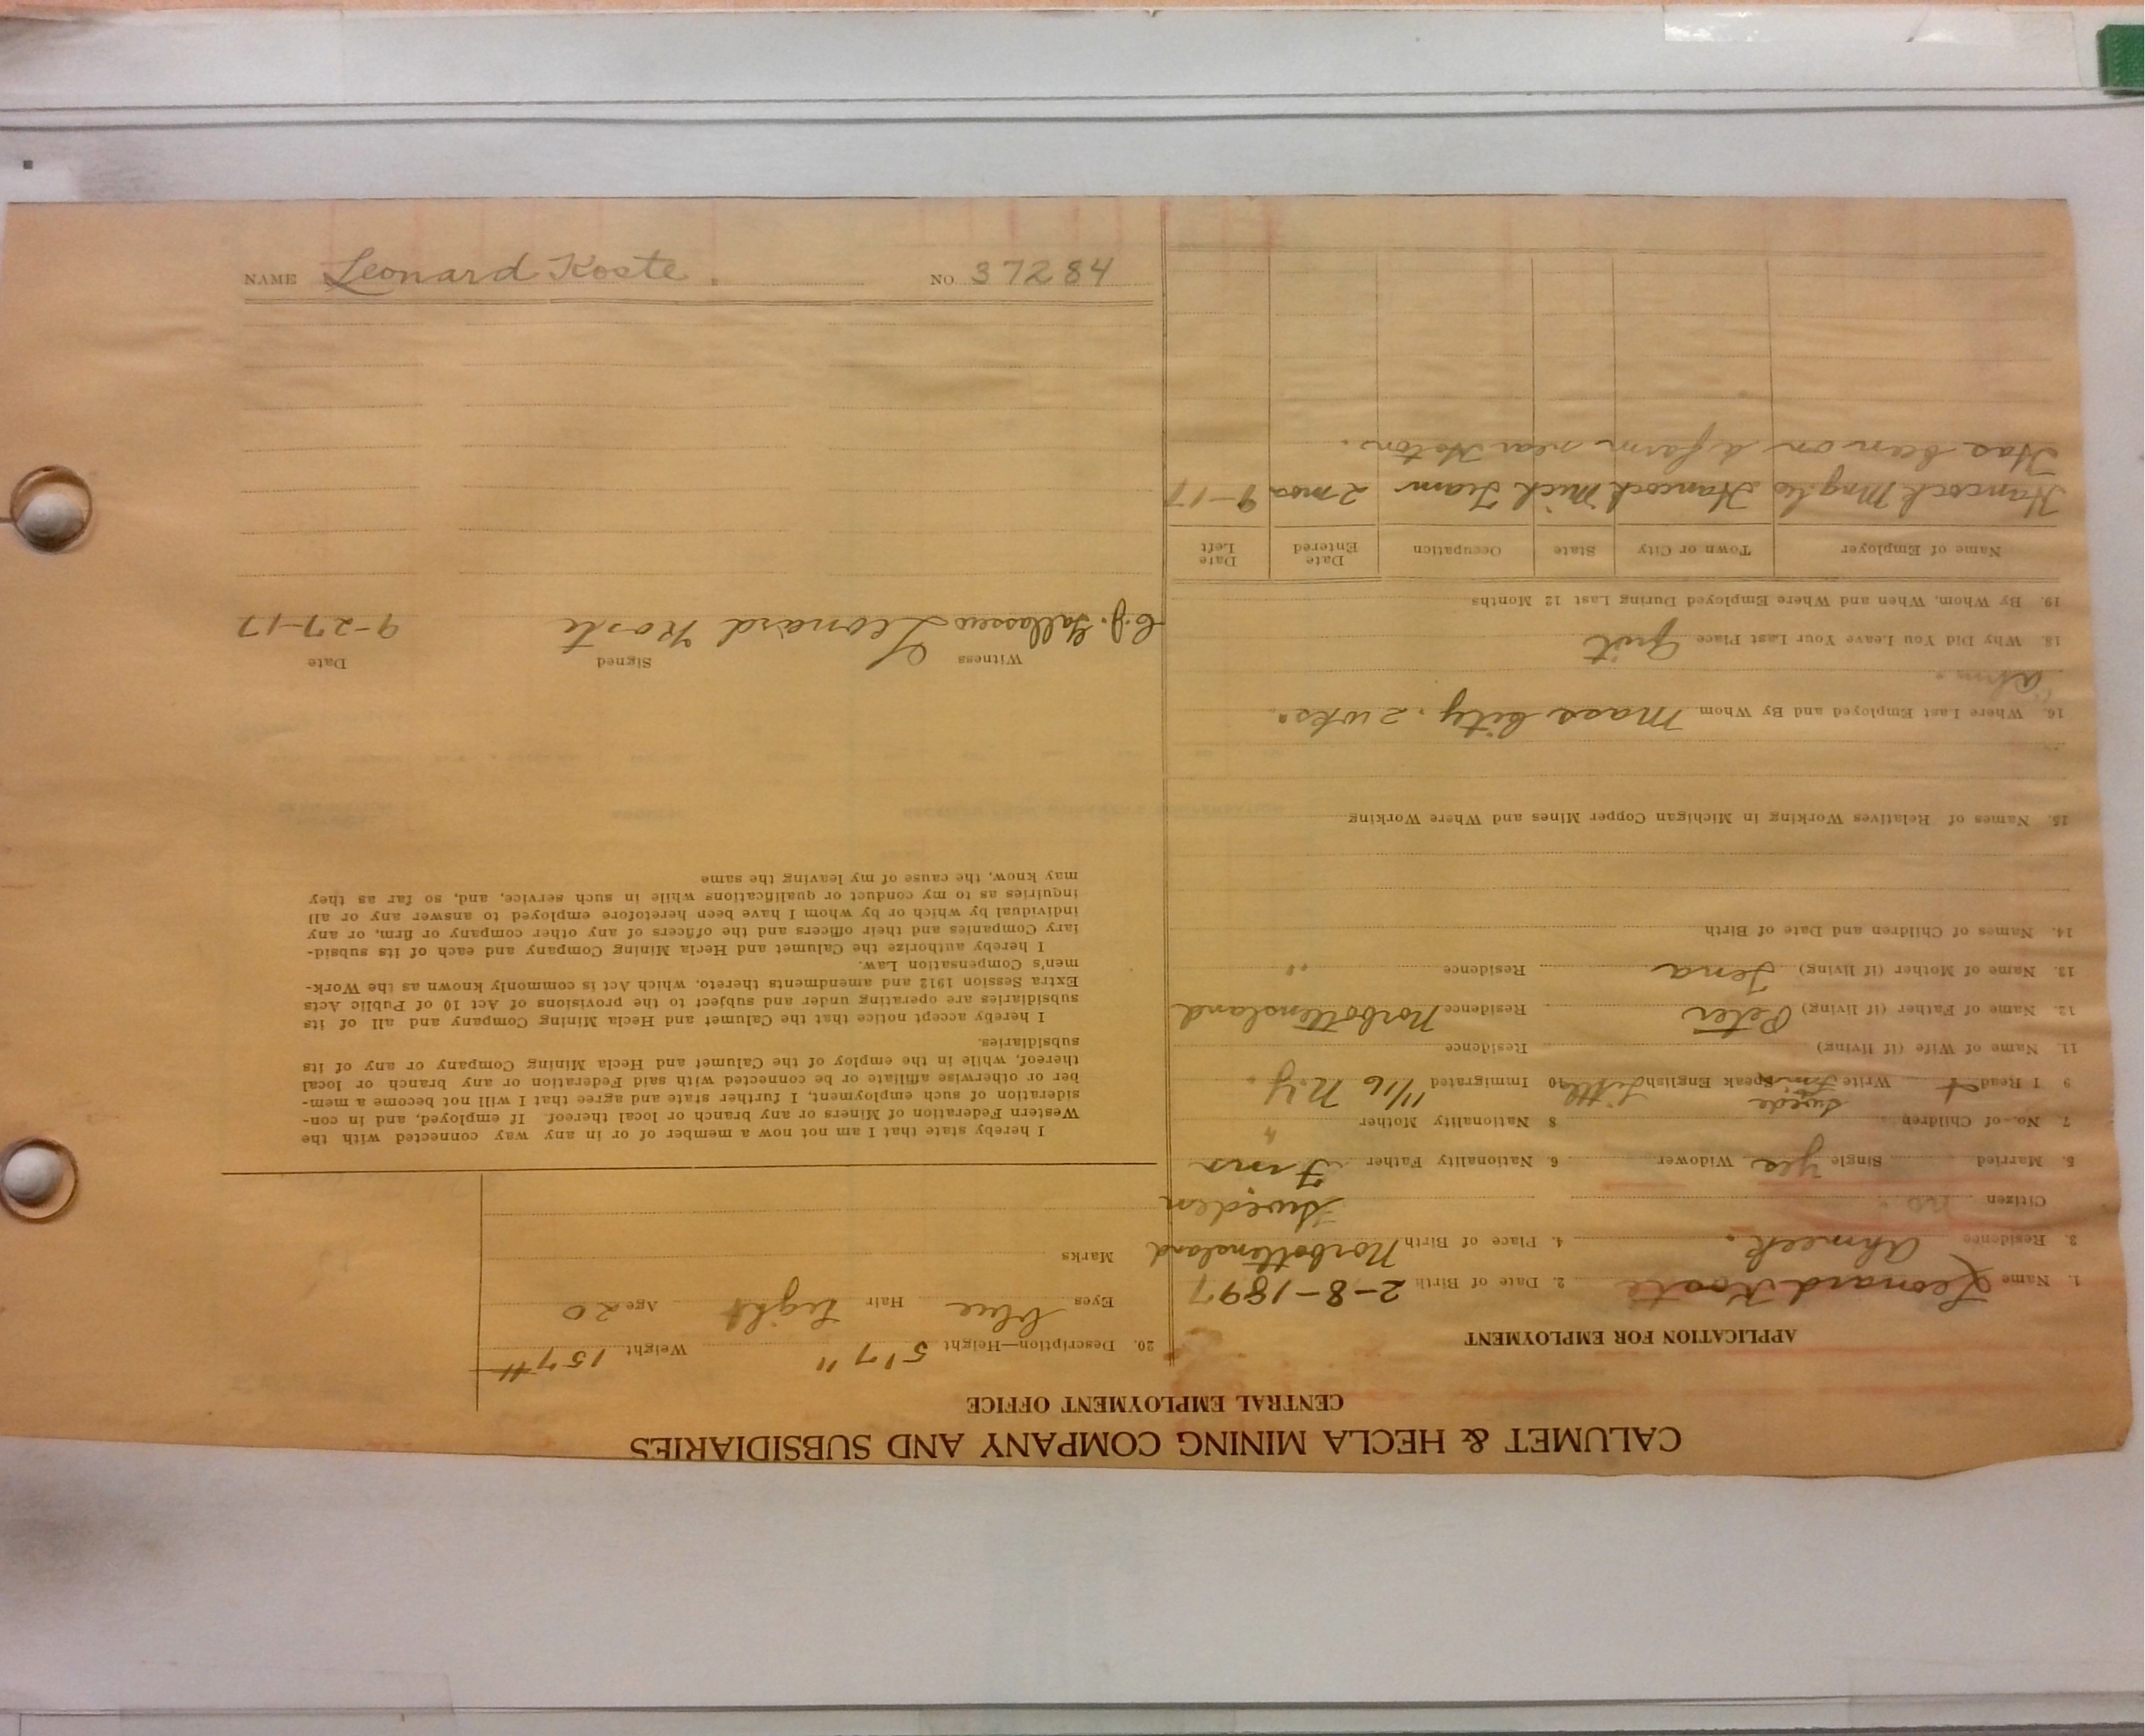 CALUMET & HECLA MINING COMPANY AND SUBSIDIARIES
CENTRAL EMPLOYMENT OFFICE
APPLICATION FOR EMPLOYMENT
1. Name Leonard Koste 2. Date of Birth 2-8-1897
3. Residence Ahmeek. 4. Place of Birth Norbottensland
Citizen no. Sweden
5. Married Single Yes Widower 6. Nationality Father Finn
7 No. of Children 8 Nationality Mother "
Swede
9 I Read Write Finn Speak English Little 10 Immigrated 11/16 N.Y.
11. Name of Wife (if living) Residence
12. Name of Father (if living) Peter Residence Norbottensland
13. Name of Mother (if living) Residence "
14. Names of Children and Date of Birth
15. Names of Relatives Working in Michigan Copper Mines and Where Working
16. Where Last Employed and By Whom Mass City. 2 wks.
Ahm.
18. Why Did You Leave Your Last Place Quit
19. By Whom, When and Where Employed During Last 12 Months
Name of Employer Town or City State Occupation Date Entered Date Left
Hancock Hancock Mich Tram 2 mos 9-17
Has been on a farm near
20. Description—Height 5'7" Weight 157#
Eyes blue Hair Light Age 20
Marks
I hereby state that I am not now a member of or in any way connected with the
Western Federation of Miners or any branch or local thereof. If employed, and in con-
sideration of such employment, I further state and agree that I will not become a mem-
ber or otherwise affiliate or be connected with said Federation or any branch or local
thereof, while in the employ of the Calumet and Hecla Mining Company or any of its
subsidiaries.
I hereby accept notice that the Calumet and Hecla Mining Company and all of its
subsidiaries are operating under and subject to the provisions of Act 10 of Public Acts
Extra Session 1912 and amendments thereto, which Act is commonly known as the Work-
men's Compensation Law.
I hereby authorize the Calumet and Hecla Mining Company and each of its subsid-
iary Companies and their officers and the officers of any other company or firm, or any
individual by which or by whom I have been heretofore employed to answer any or all
inquiries as to my conduct or qualifications while in such service, and, so far as they
may know, the cause of my leaving the same
Witness Signed Date
C.J. Leonard Koste 9-27-17
NAME Leonard Koste NO. 37284